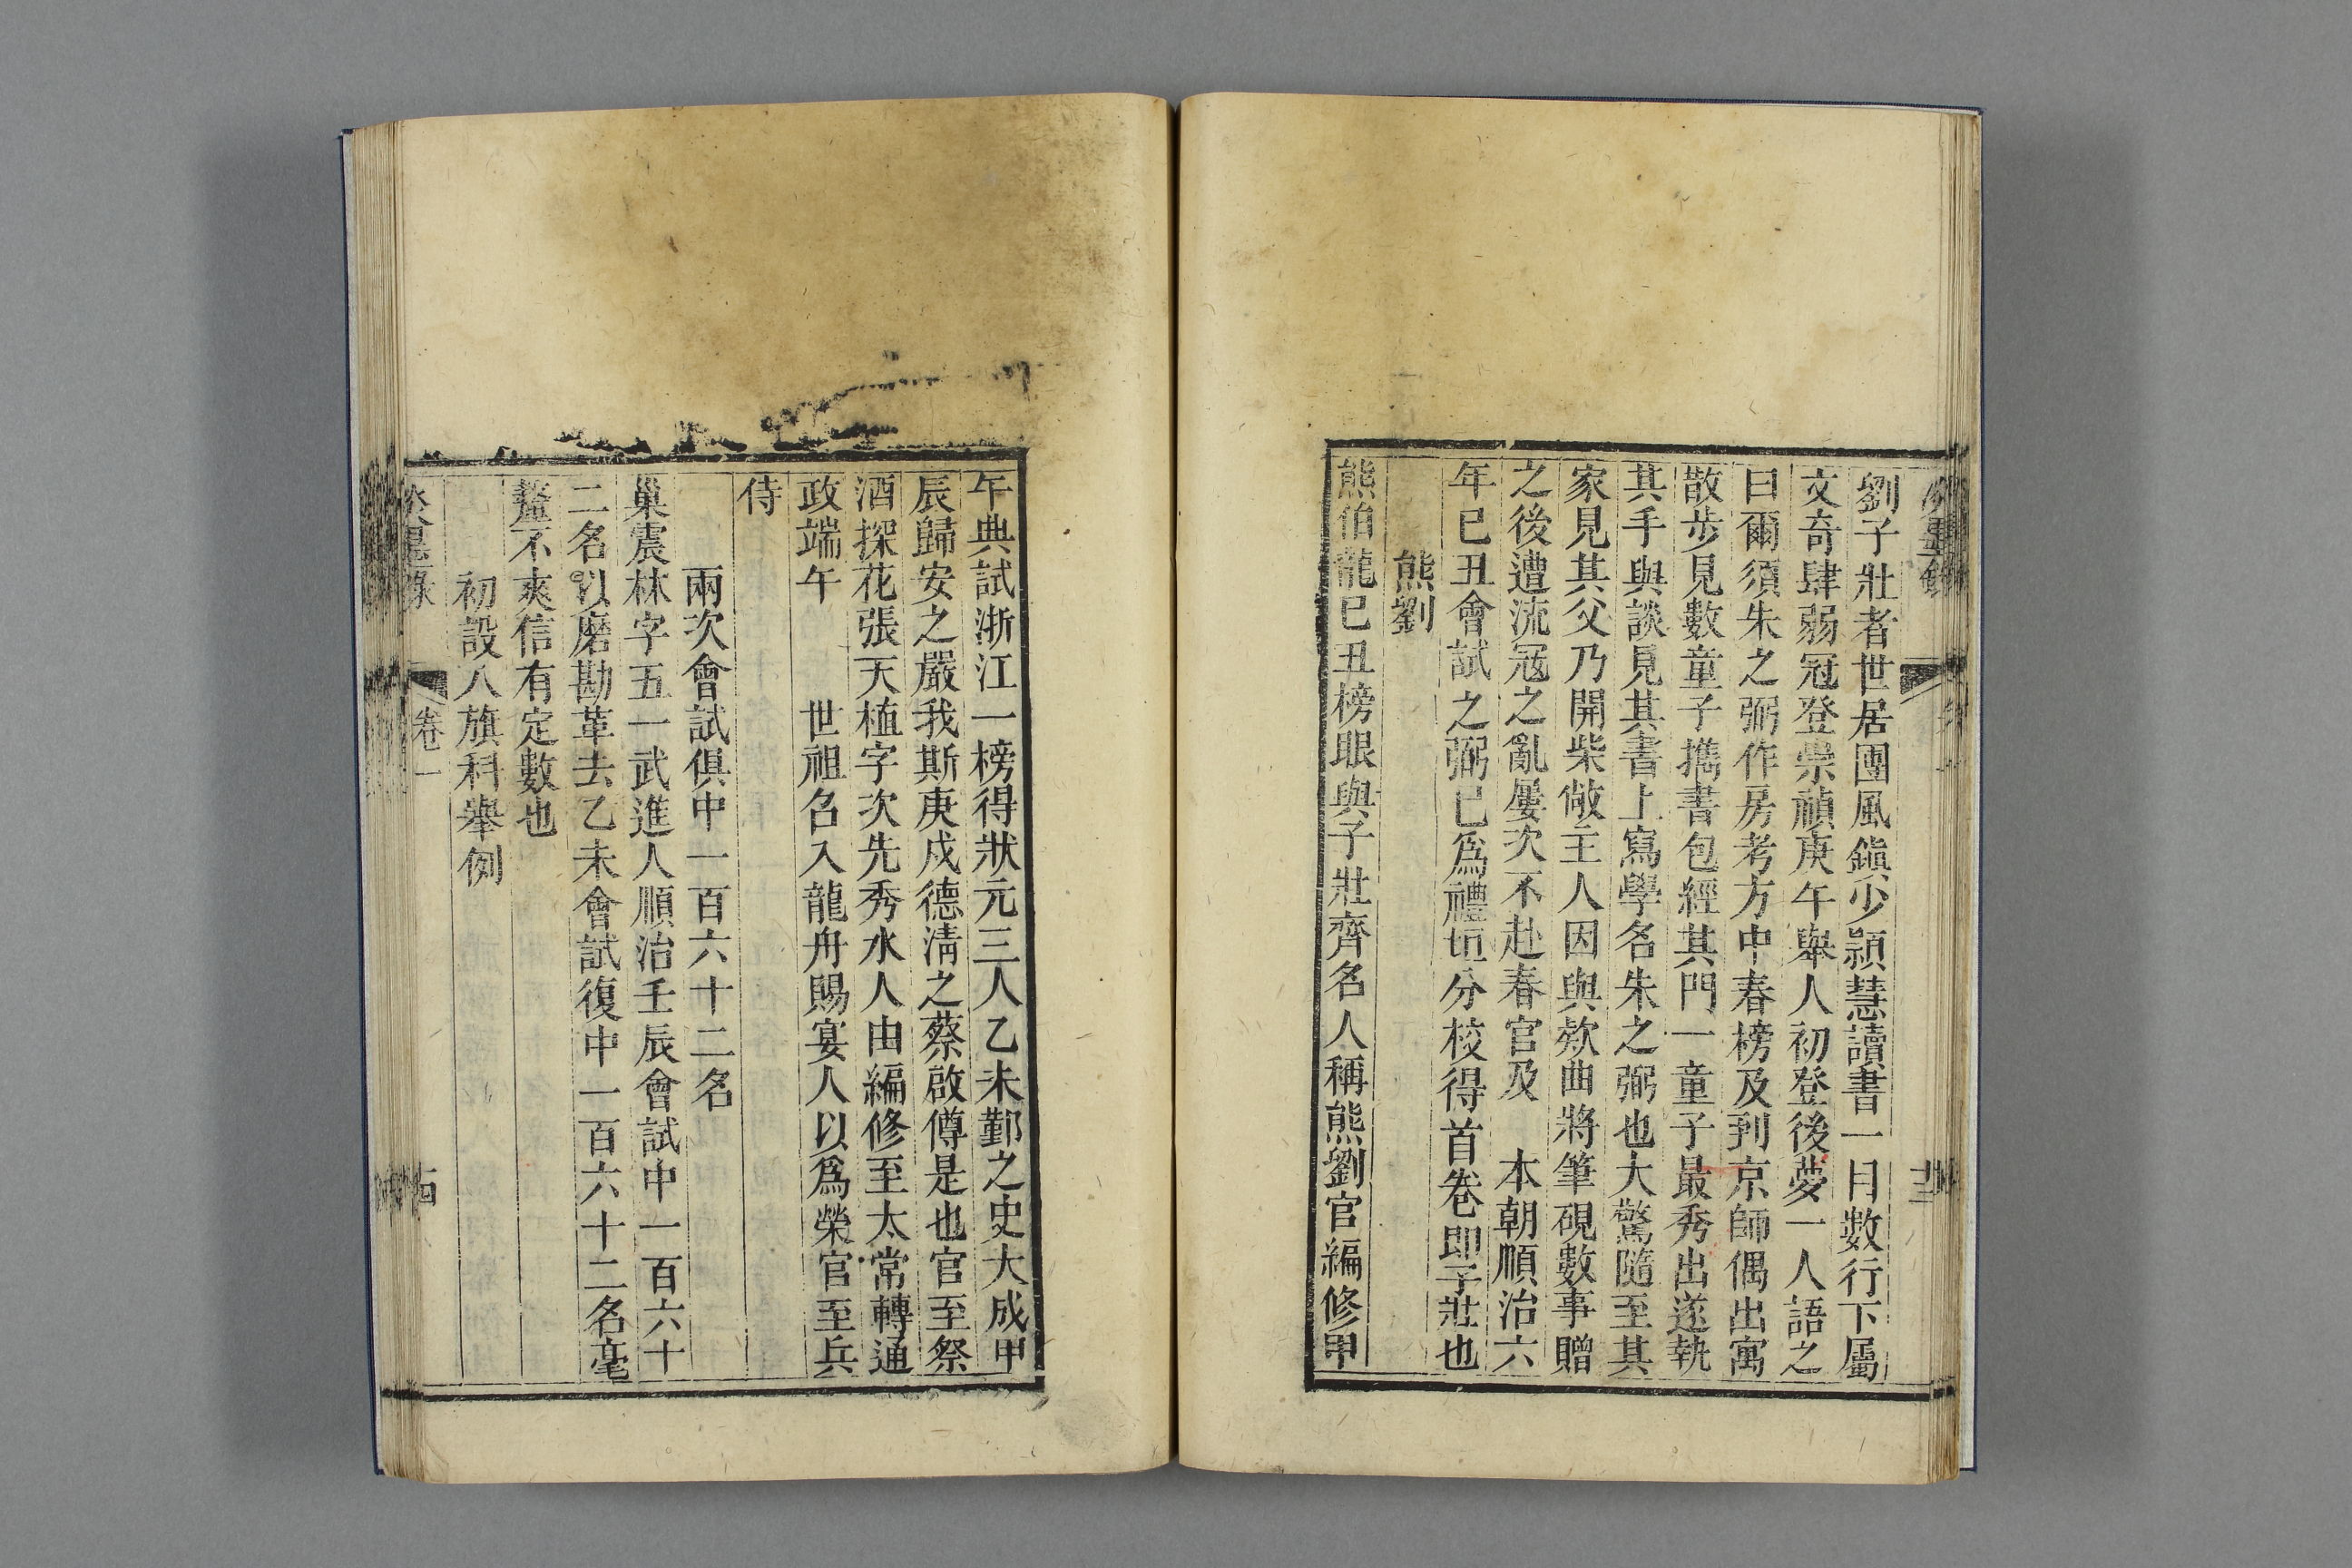 劉子壯者世居團風鎭少頴慧讀書一日數行下屬
文奇肆弱冠登崇禎庚午舉人初登後夢一人語之
曰爾須朱之弼作房考方中春榜及到京師偶出寓
散步見數童子擕書包經其門一童子最秀出遂執
其手與談見其書上寫學名朱之弼也大驚隨至其
家見其父乃開柴敞主人因與欵曲將筆硯數事贈
之後遭流冦之亂屢次不赴春官及　本朝順治六
年已丑會試之弼已爲禮垣分校得首卷即子壯也
熊劉
熊伯龍已丑榜眼與子壯齊名人稱熊劉官編修甲
午典試浙江一榜得狀元三人乙未鄞之史大成甲
辰歸安之嚴我斯庚戍德淸之蔡啟僔是也官至祭
酒探花張天植字次先秀水人由編修至太常轉通
政端午　　世祖召入龍舟賜宴人以爲榮官至兵
侍
兩次會試俱中一百六十二名
巢震林字五一武進人順治壬辰會試中一百六十
二名以磨勘革去乙未會試復中一百六十二名毫
釐不爽信有定數也
初設八旗科舉例
卷一